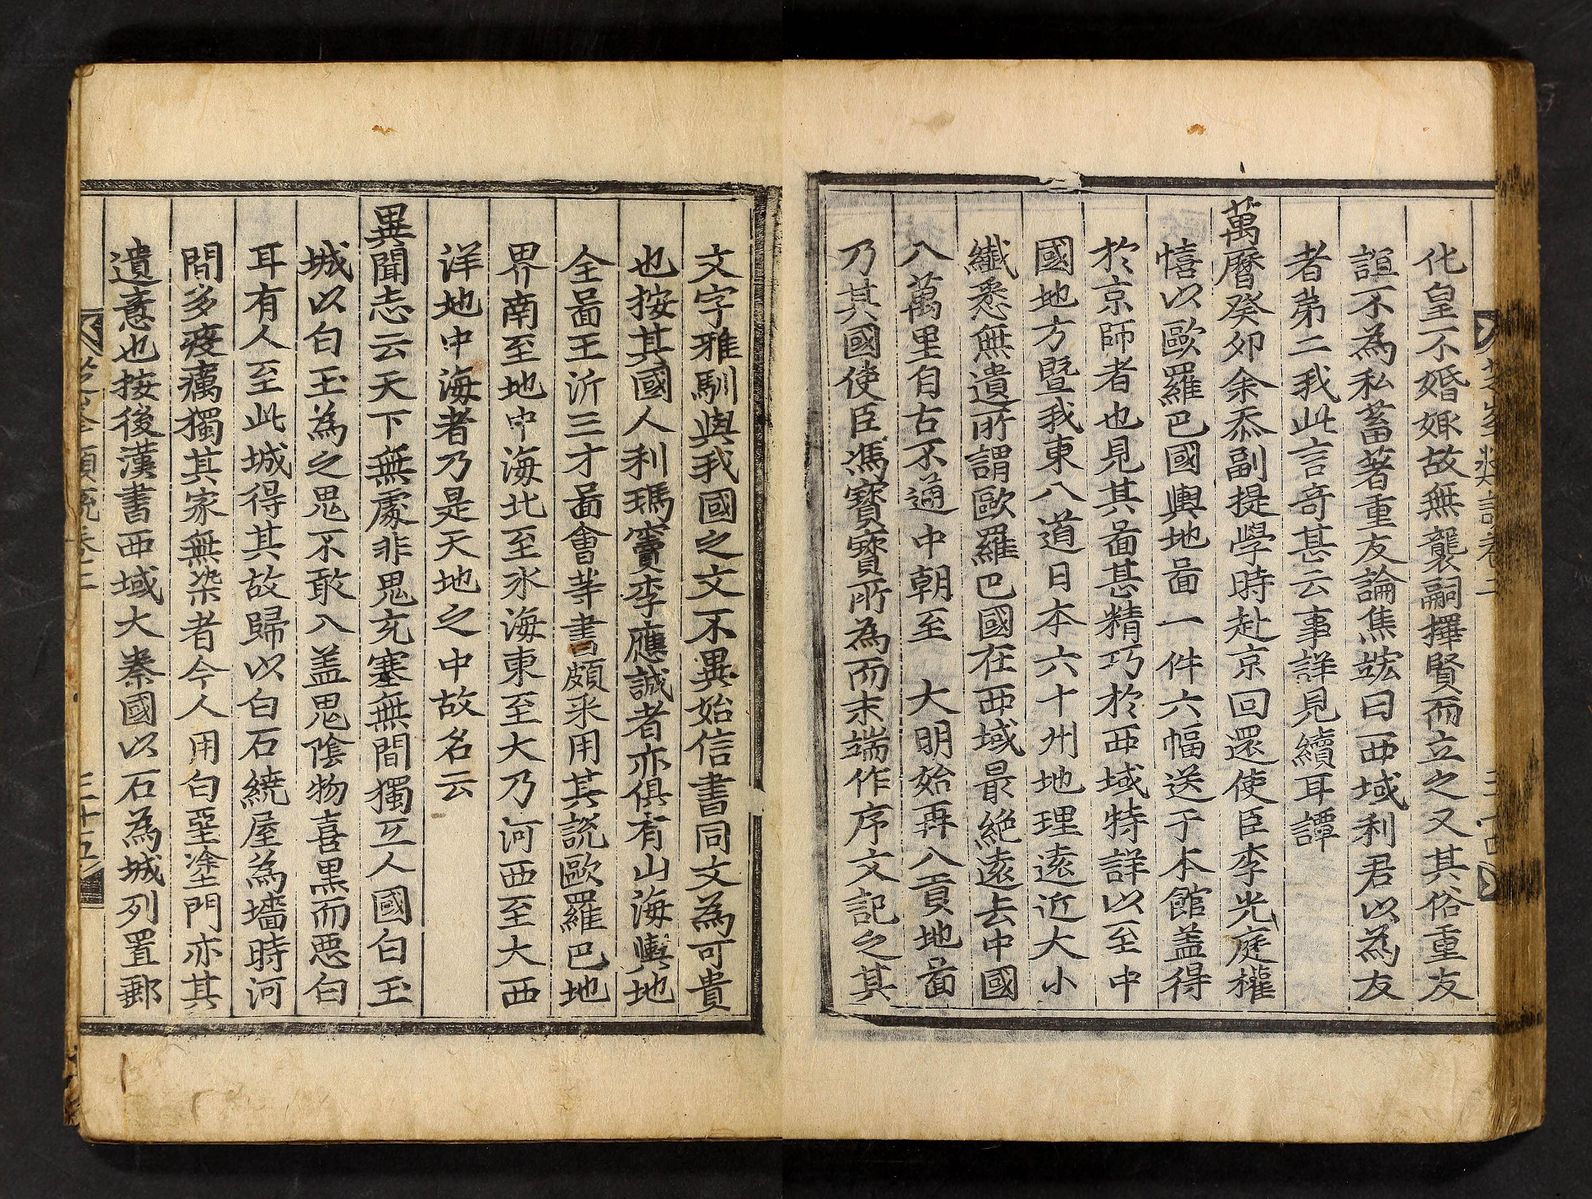 化皇不婚娵故無襲嗣擇賢而立之又其俗重友
誼不為私蓄著重友論焦竑曰西域利君以為友
者第二我此言奇甚云事詳見續耳譚
萬曆癸卯余忝副提學時赴京回還使臣李光庭權
憘以歐羅巴國輿地啚一件六幅送于本館盖得
於京師者也見其啚甚精巧於西域特詳以至中
國地方暨我東八道日本六十州地理遠近大小
纖悉無遺所謂歐羅巴國在西域最絶遠去中國
八萬里自古不通中朝至 大明始再入貢地啚
乃其國使臣馮寶寶所為而末端作序文記之其
文字雅馴與我國之文不異始信書同文為可貴
也按其國人利瑪竇李應誠者亦俱有山海輿地
全啚王沂三才啚會等書頗采用其說歐羅巴地
界南至地中海北至氷海東至大乃河西至大西
洋地中海者乃是天地之中故名云
異聞志云天下無處非鬼充塞無間獨亙人國白玉
城以白玉為之鬼不敢入盖鬼陰物喜黑而惡白
耳有人至此城得其故歸以白石繞屋為墻時河
間多疫癘獨其家無染者今人用白堊塗門亦其
遺意也按後漢書西域大秦國以石為城列置郵
芝峯類說卷二
三十四
芝峯類說卷二
三十五